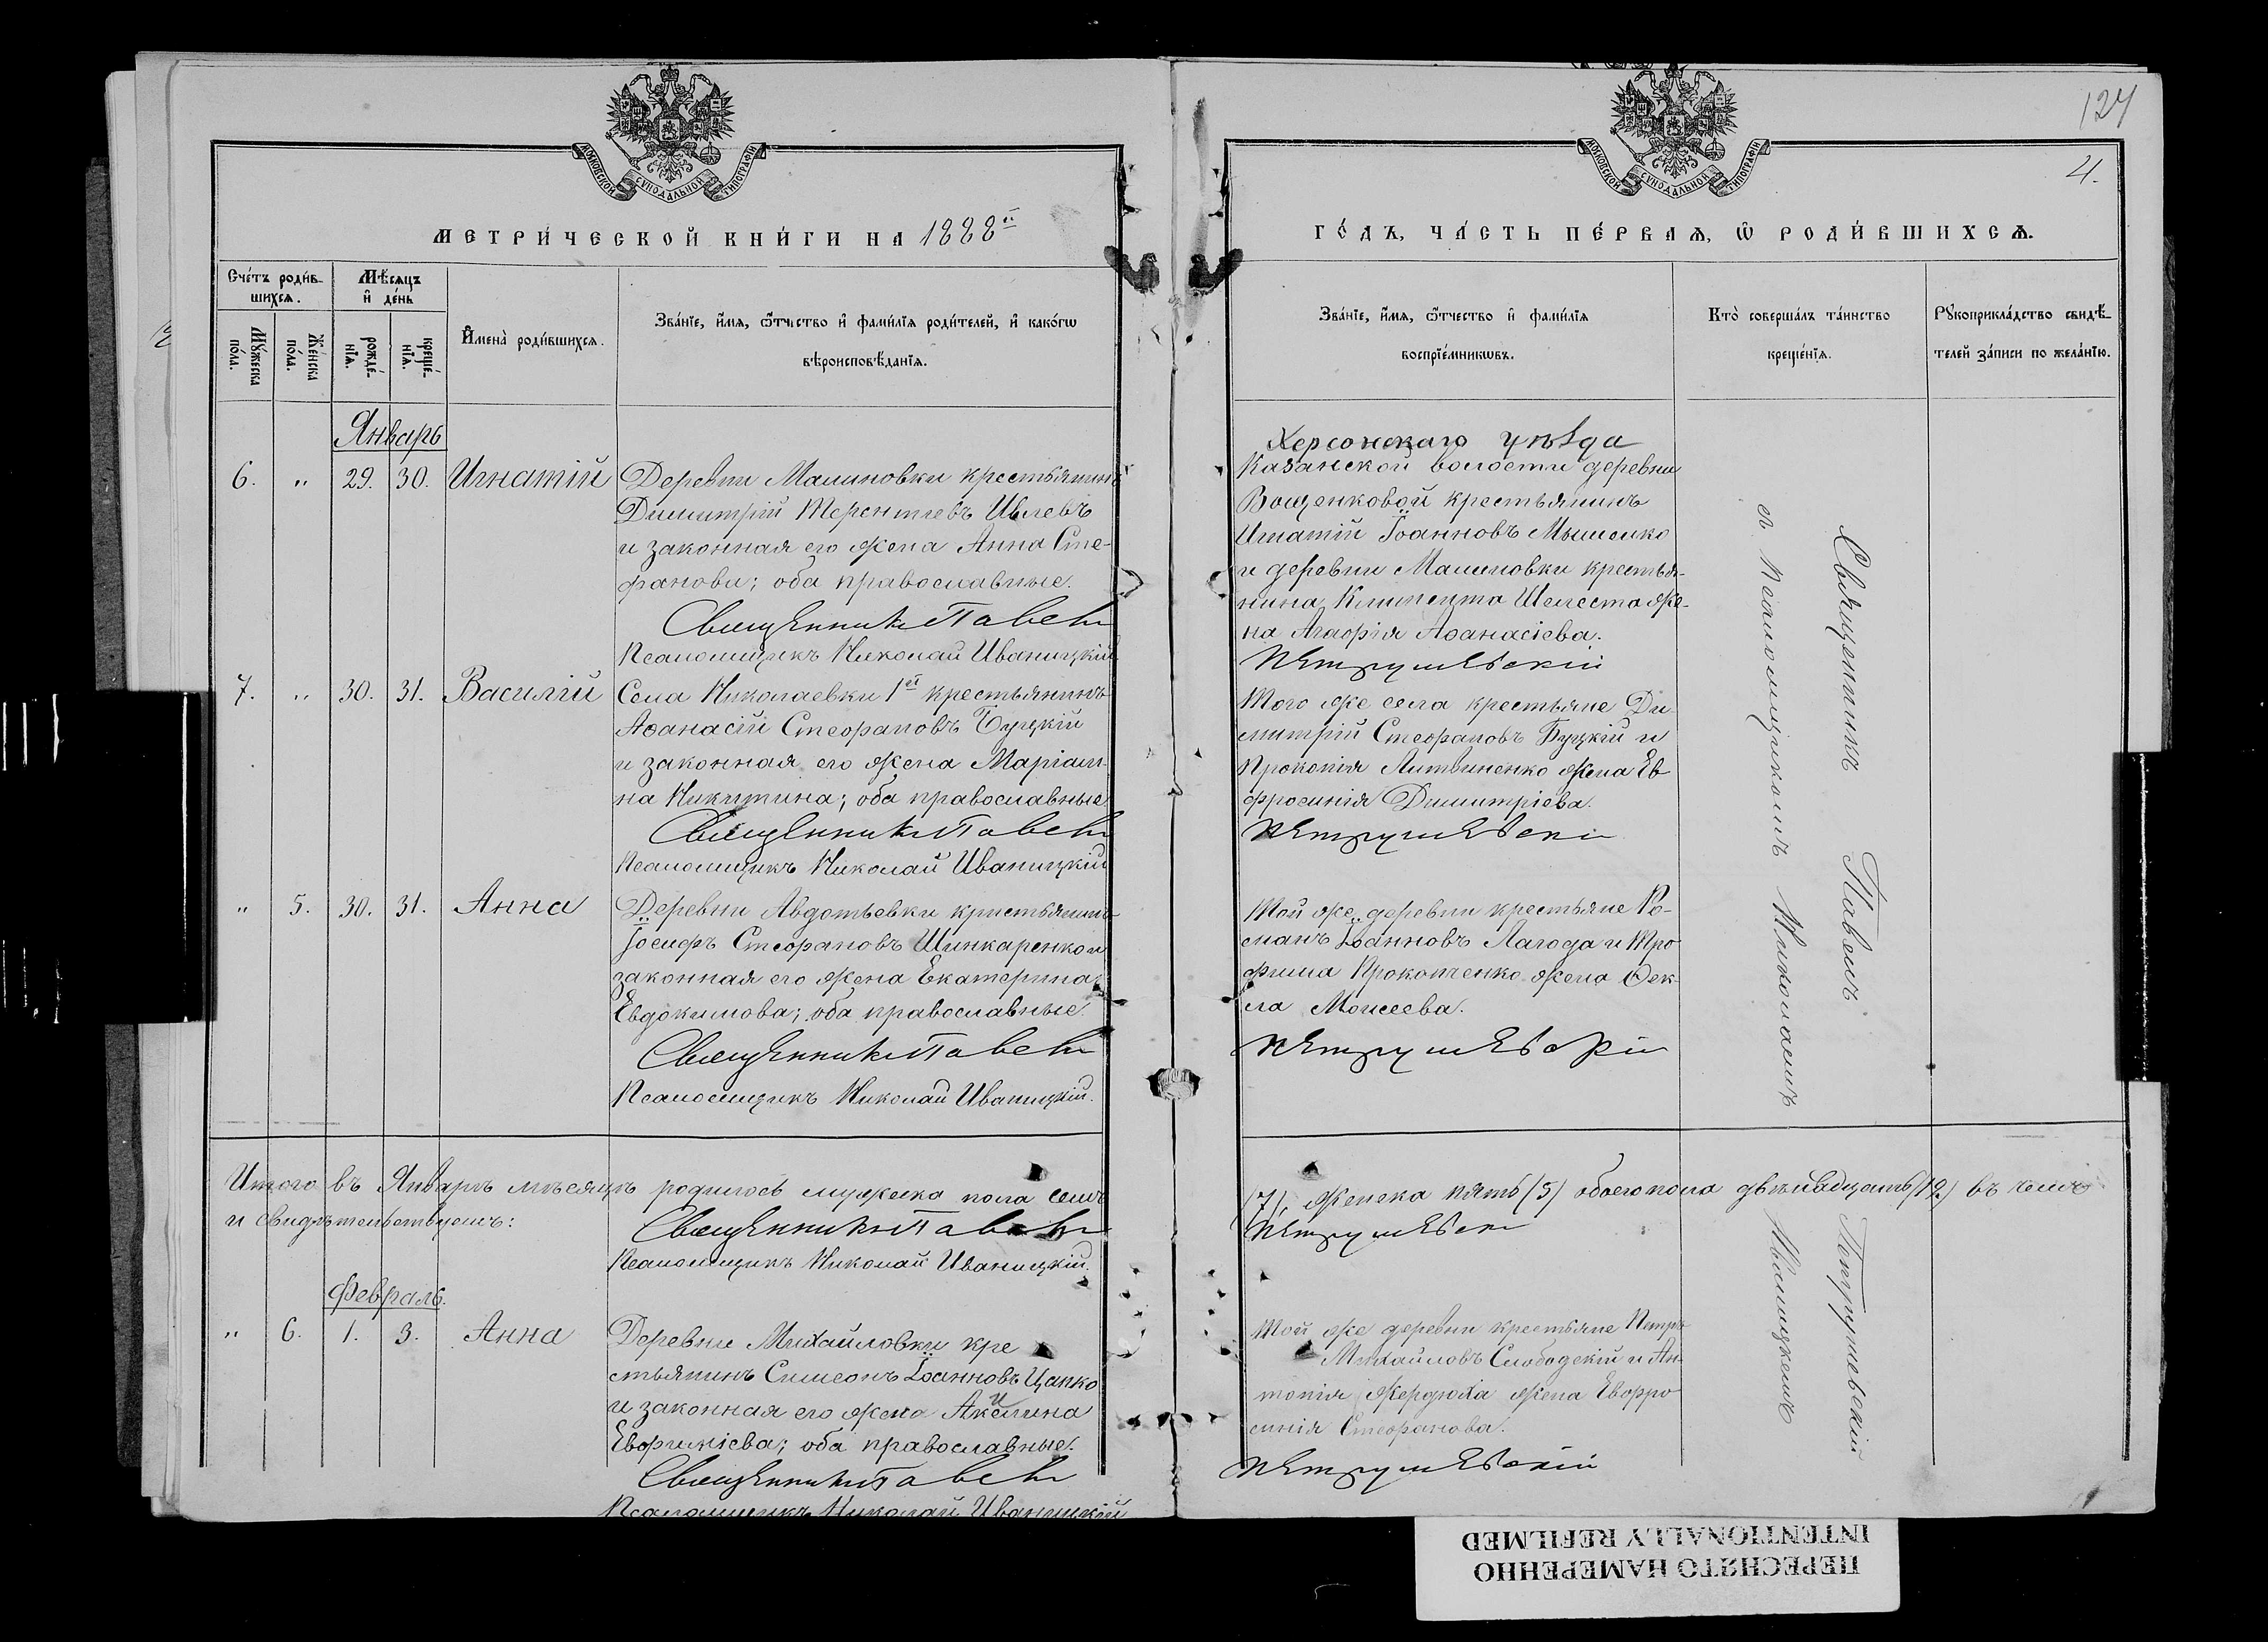 127
4.
МОСКОВСКОЙ СѴНОДАЛЬНОЙ ТИПОГРАФІИ
МОСКОВСКОЙ СѴНОДАЛЬНОЙ ТИПОГРАФІИ
МЕТРИ́ЧЕСКОЙ КНИ́ГИ НА 1888й
ГО́ДЪ, ЧА́СТЬ ПЕ́РВАѦ, Ѡ РОДИ́ВШИХСѦ.
Сче́тъ роди́в-
шихсѧ.
Мѣ́сѧцъ
и҆ де́нь
Мꙋ́жеска по́ла.
Же́нска по́ла.
рожде́-
нїѧ.
креще́-
нїѧ.
И҆мена̀ роди́вшихсѧ.
Зва́нїе, и҆́мѧ, ѻ҆́тчество и҆ фами́лїѧ роди́телей, и҆ како́гѡ
вѣроисповѣ́данїѧ.
Зва́нїе, и҆́мѧ, ѻ҆́тчество и҆ фами́лїѧ
воспрїе́мникѡвъ.
Кто̀ соверша́лъ та́инство
креще́нїѧ.
Рꙋкоприкла́дство свидѣ́-
телей за́писи по жела́нїю.
Январь
6. " 29. 30. Игнатій
Деревни Малиновки крестьянинъ
Димитрій Терентіевъ Ивлевъ
и законная его жена Анна Сте-
фанова; оба православные.
Священникъ Павелъ
Псаломщикъ Николай Иваницкій
Херсонскаго уѣзда
Казанской волости деревни
Вощенковой крестьянинъ
Игнатій Іоанновъ Мышенко
и деревни Малиновки крестья-
нина Климента Шелеста же-
на Агафія Аѳанасіева.
Петрушевскій
7. " 30. 31. Василій
Села Николаевки 1й крестьянинъ
Аѳанасій Стефановъ Буцкій
и законная его жена Маріан-
на Никитина; оба православные
Священникъ Павелъ
Псаломщикъ Николай Иваницкій
Того же села крестьяне Ди-
митрій Стефановъ Буцкій и
Прокопія Литвиненко жена Ев
фросинія Димитріева.
Петрушевскій
" 5. 30. 31. Анна
Деревни Авдотьевки крестьянинъ
Іосифъ Стефановъ Шинкаренко и
законная его жена Екатерина
Евдокимова; оба православные.
Священникъ Павелъ
Псаломщикъ Николай Иваницкій.
Той же деревни крестьяне Ро-
манъ Іоанновъ Лагода и Тро
фима Прокопченко жена Ѳек-
ла Моисеева.
Петрушевскій
Священникъ Павелъ Петрушевскій
съ псаломщикомъ Николаемъ Иваницкимъ
Итого въ Январѣ мѣсяцѣ родилось мужеска пола семь (7), женска пять (5) обоего пола двѣнадцать (12) въ чемъ
и свидѣтельствуемъ:
Священникъ Павелъ Петрушевскій
Псаломщикъ Николай Иваницкій.
Февраль.
" 6. 1. 3. Анна
Деревни Михайловки кре
стьянинъ Симеонъ Іоанновъ Цапко
и законная его жена Акилина
Евфиміева; оба православные.
Священникъ Павелъ
Псаломщикъ Николай Иваницкій
Той же деревни крестьяне Петръ
Михайловъ Слободскій и Ан-
тонія Жердюха жена Евфро
синія Стефанова.
Петрушевскій
ПЕРЕСНЯТО НАМЕРЕННО
INTENTIONALLY REFILMED